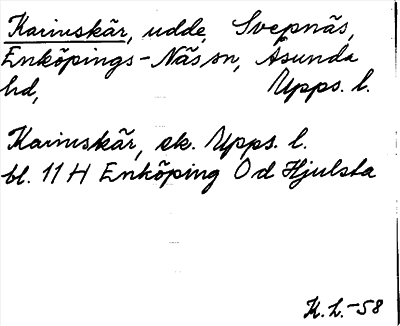 Karinskär, udde, Svepnäs,
Enköpings-Näs sn, Åsunda
hd, Upps. l.
Karinskär, ek. Upps. l.
bl. 11 H Enköping 0 d Hjulsta
K. L. -58